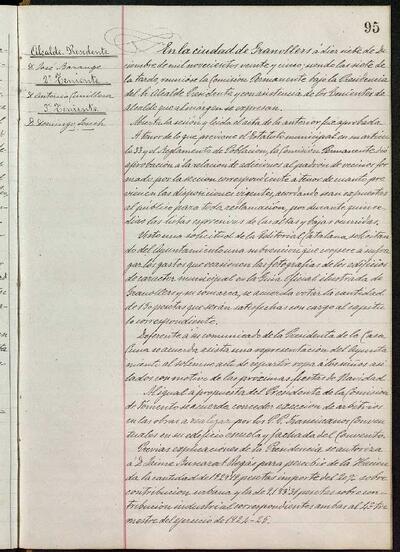 95
Alcalde Presidente
D. José Barangé
2º Teniente
D. Antonio Cumillera
3º Teniente
D. Domingo
En la ciudad de Granollers a diez siete de Di-
ciembre de mil novecientos veinte y cinco; siendo las siete de
la tarde, reunióse la Comisión Permanente bajo la Presidencia
del h. Alcalde Presidente y con asistencia de los Tenientes de
Alcalde que al margen se expresan.
Abierta la sesión y leída el acta de la anterior fue aprobada.
A tenor de lo que previene el Estatuto municipal en su artícu-
lo 33 y el Reglamento de Población, la Comisión Permanente dió
aprobación a la relación de adiciones al padrón de vecinos for-
mado por la sección correspondiente a tenor de cuanto pre-
vienen las disposiciones vigentes, acordando sean expuestas
al público para toda reclamación, por durante quince
días las listas expresivas de las altas y bajas ocurridas.
Vista una solicitud de la Editorial Catalana solicitan-
do del Ayuntamiento una subvención que coopere a sufra-
gar los gastos que ocasionen las fotografías de los edificios
de carácter municipal en la Guía Oficial ilustrada de
Granollers y su comarca, se acuerda votar la cantidad
de 130 pesetas que serán satisfechas con cargo al capítu-
lo correspondiente.
Deferente a un comunicado de la Presidenta de la Casa
Cuna se acuerda asista una representación del Ayunta-
miento al solemne acto de repartir ropa a los niños asi-
lados con motivo de las próximas fiestas de Navidad.
Al igual a propuesta del Presidente de la Comisión
de Fomento se acuerda conceder exacción de arbitrios
en las obras a realizar por los P.P. Franciscanos Conven-
tuales en su edificio escuela y fachada del Convento.
Previas explicaciones de la Presidencia se autoriza
a D. Jaime para percibir de la Hacien-
da la cantidad de pesetas importe del 20% sobre
contribución urbana y la de pesetas sobre con-
tribución industrial correspondientes ambas al
mestre del ejercicio de 1924-25.